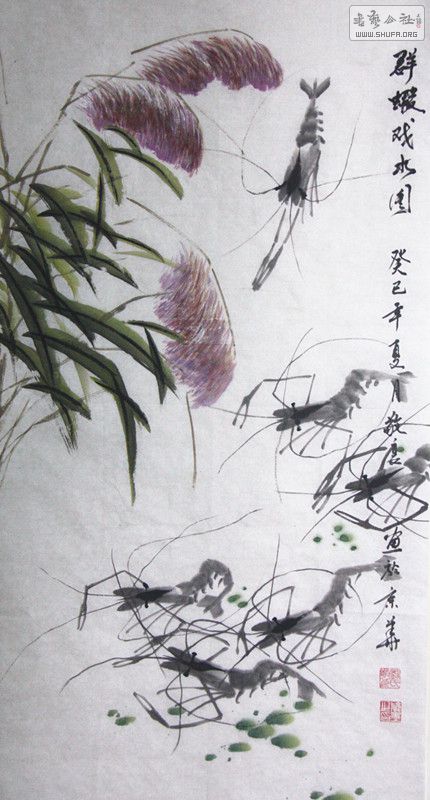 书艺公社
WWW.SHUFA.ORG
群蝦戏水图
癸巳年夏月敬唐画於京華